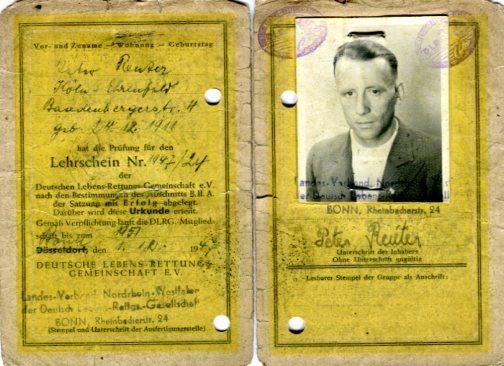 Vor- und Zuname — Wohnung — Geburtstag
Peter Reuter
Köln-Ehrenfeld
4
geb. 24.12.1911
hat die Prüfung für den
Lehrschein Nr. 147/24
der
Deutschen Lebens-Rettungs-Gemeinschaft e.V.
nach den Bestimmungen des Abschnitts B.II.A
der Satzung mit Erfolg abgelegt.
Darüber wird diese Urkunde erteilt.
Gemäß Verpflichtung läuft die DLRG.-Mitglied-
schaft bis zum 1951
Düsseldorf, den 194
DEUTSCHE LEBENS-RETTUNGS-
GEMEINSCHAFT E.V.
Landes-Verband Nordrhein-Westfalen
der Deutsch Lebens-Rettgs.-Gesellschaft
BONN, Rheinbacherstr. 24
(Stempel und Unterschrift der Ausfertigungsstelle)
Landes-Verband Nordrhein
der Deutsch Lebens
BONN, Rheinbacherstr. 24
Peter Reuter
Unterschrift des Inhabers
Ohne Unterschrift ungültig
Lesbarer Stempel der Gruppe als Anschrift: